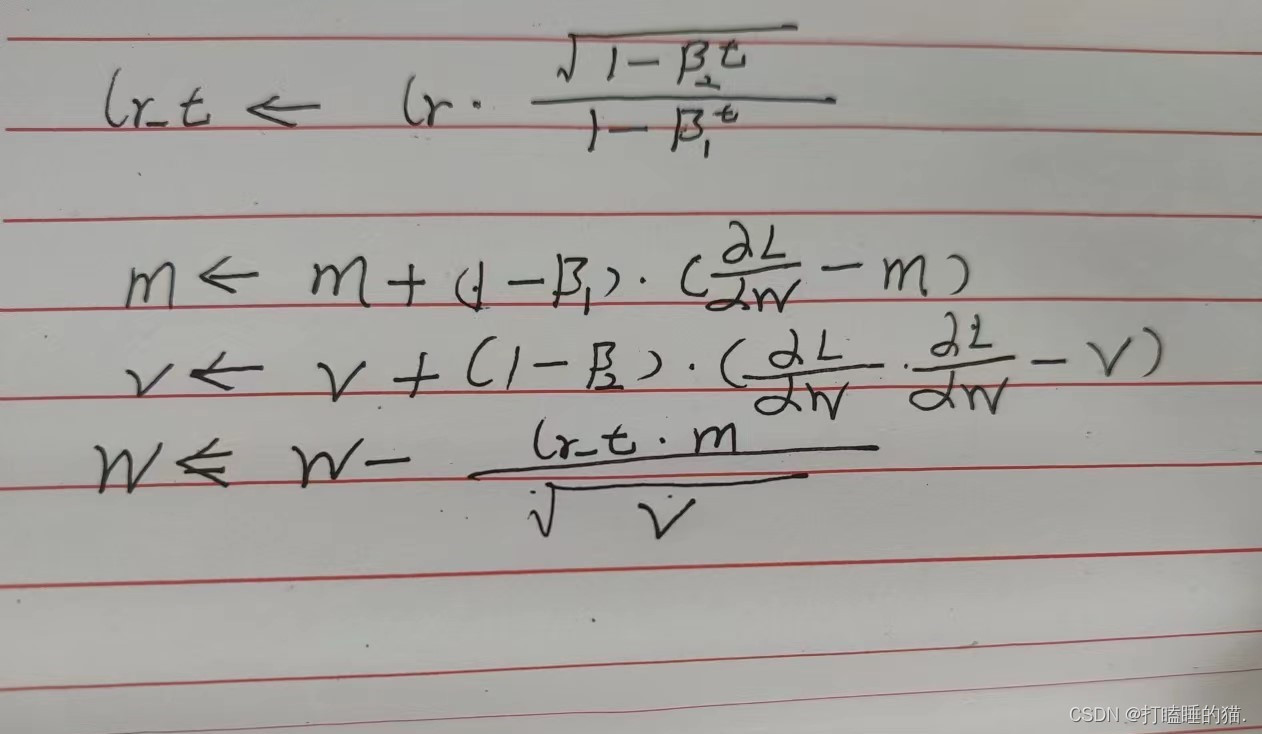 lr_t ← lr · √(1 − β₂ᵗ) / (1 − β₁ᵗ)
m ← m + (1 − β₁) · (∂L/∂W − m)
v ← v + (1 − β₂) · (∂L/∂W · ∂L/∂W − v)
W ← W − lr_t · m / √v
CSDN @打瞌睡的猫.